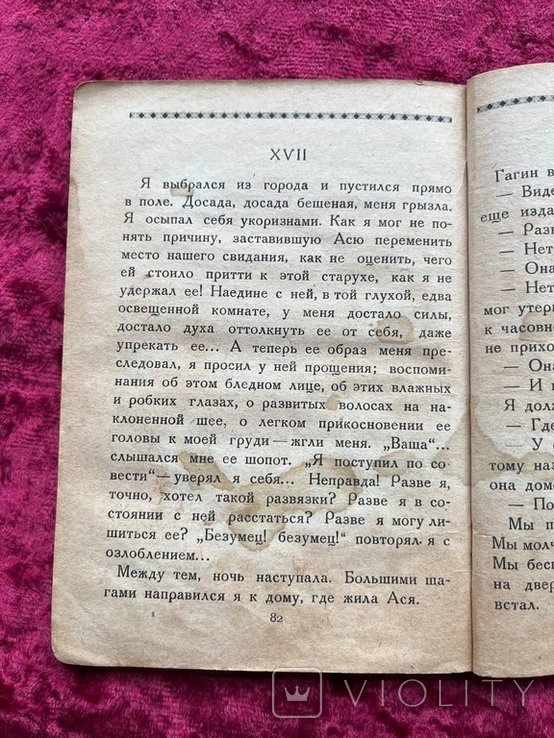 XVII
Я выбрался из города и пустился прямо
в поле. Досада, досада бешеная, меня грызла.
Я осыпал себя укоризнами. Как я мог не по-
нять причину, заставившую Асю переменить
место нашего свидания, как не оценить, чего
ей стоило притти к этой старухе, как я не
удержал ее! Наедине с ней, в той глухой, едва
освещенной комнате, у меня достало силы,
достало духа оттолкнуть ее от себя, даже
упрекать ее... А теперь ее образ меня пре-
следовал, я просил у ней прощения; воспоми-
нания об этом бледном лице, об этих влажных
и робких глазах, о развитых волосах на на-
клоненной шее, о легком прикосновении ее
головы к моей груди — жгли меня. „Ваша“...
слышался мне ее шопот. „Я поступил по со-
вести“ — уверял я себя... Неправда! Разве я,
точно, хотел такой развязки? Разве я в со-
стоянии с ней расстаться? Разве я могу ли-
шиться ее? „Безумец! безумец!“ повторял я с
озлоблением...
Между тем, ночь наступала. Большими ша-
гами направился я к дому, где жила Ася.
82
Гагин в
— Виде
еще изда
— Разв
— Нет
— Она
— Нет
мог утер
к часовн
не прихо
— Она
— И н
Я долж
— Где
— У с
тому наз
она дом
— По
Мы п
Мы молч
Мы бесп
на двер
встал.
VIOLITY